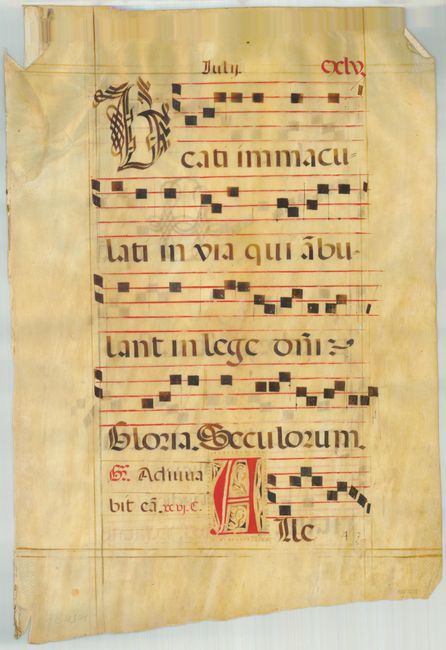 Iulij. cxlv.
Beati immacu-
lati in via qui ābu-
lant in lege dñi
Gloria. Seculorum.
Gr. Adiuva
bit eā. xcvj. Alle